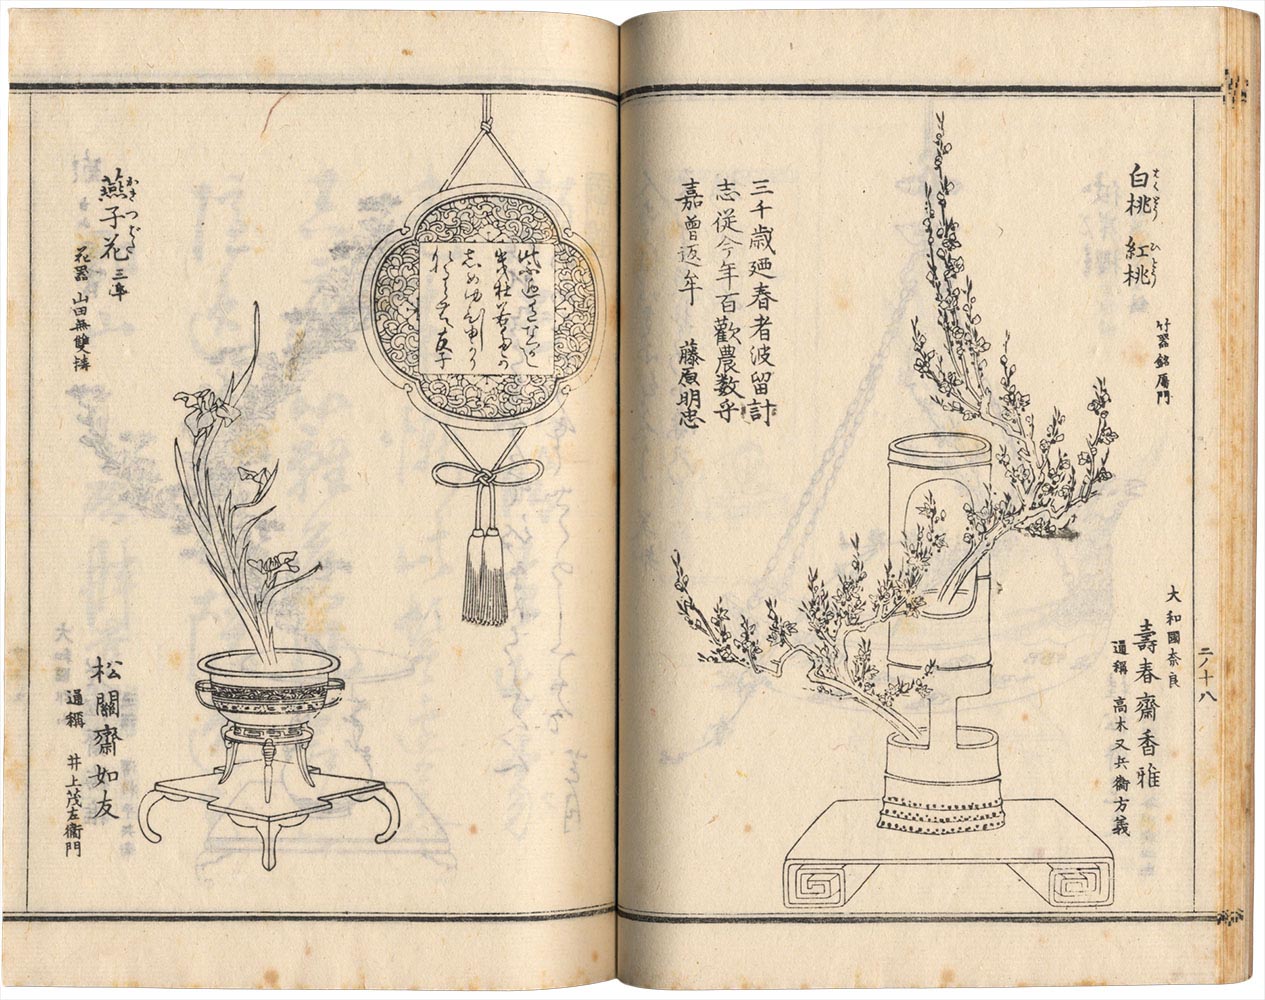 白桃 紅桃
はくとう ひとう
竹器銘鳫門
大和國奈良
壽春齋香雅
通稱 高木又兵衛方義
三千歳廼春者波留計
志従今年百歡農数乎
嘉曾迈牟 藤原明忠
二ノ十八
燕子花 三卒
かきつばた
花器 山田無雙擣
松關齋如友
通稱 井上茂左衛門